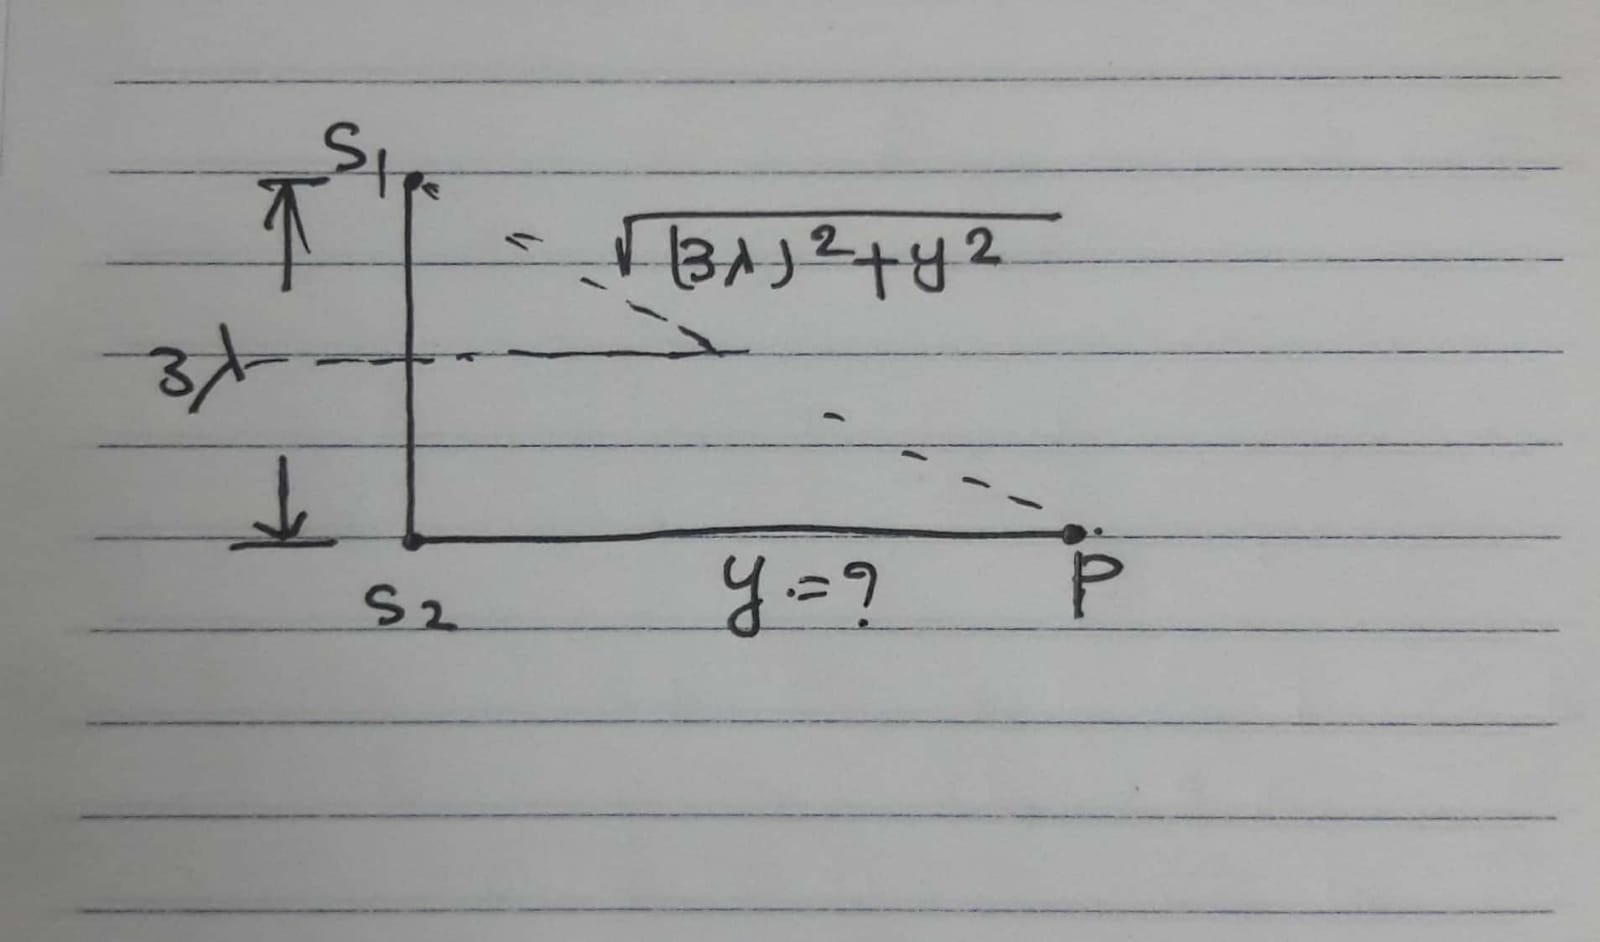 S₁
√(3λ)²+y²
3λ
S₂
y=?
P